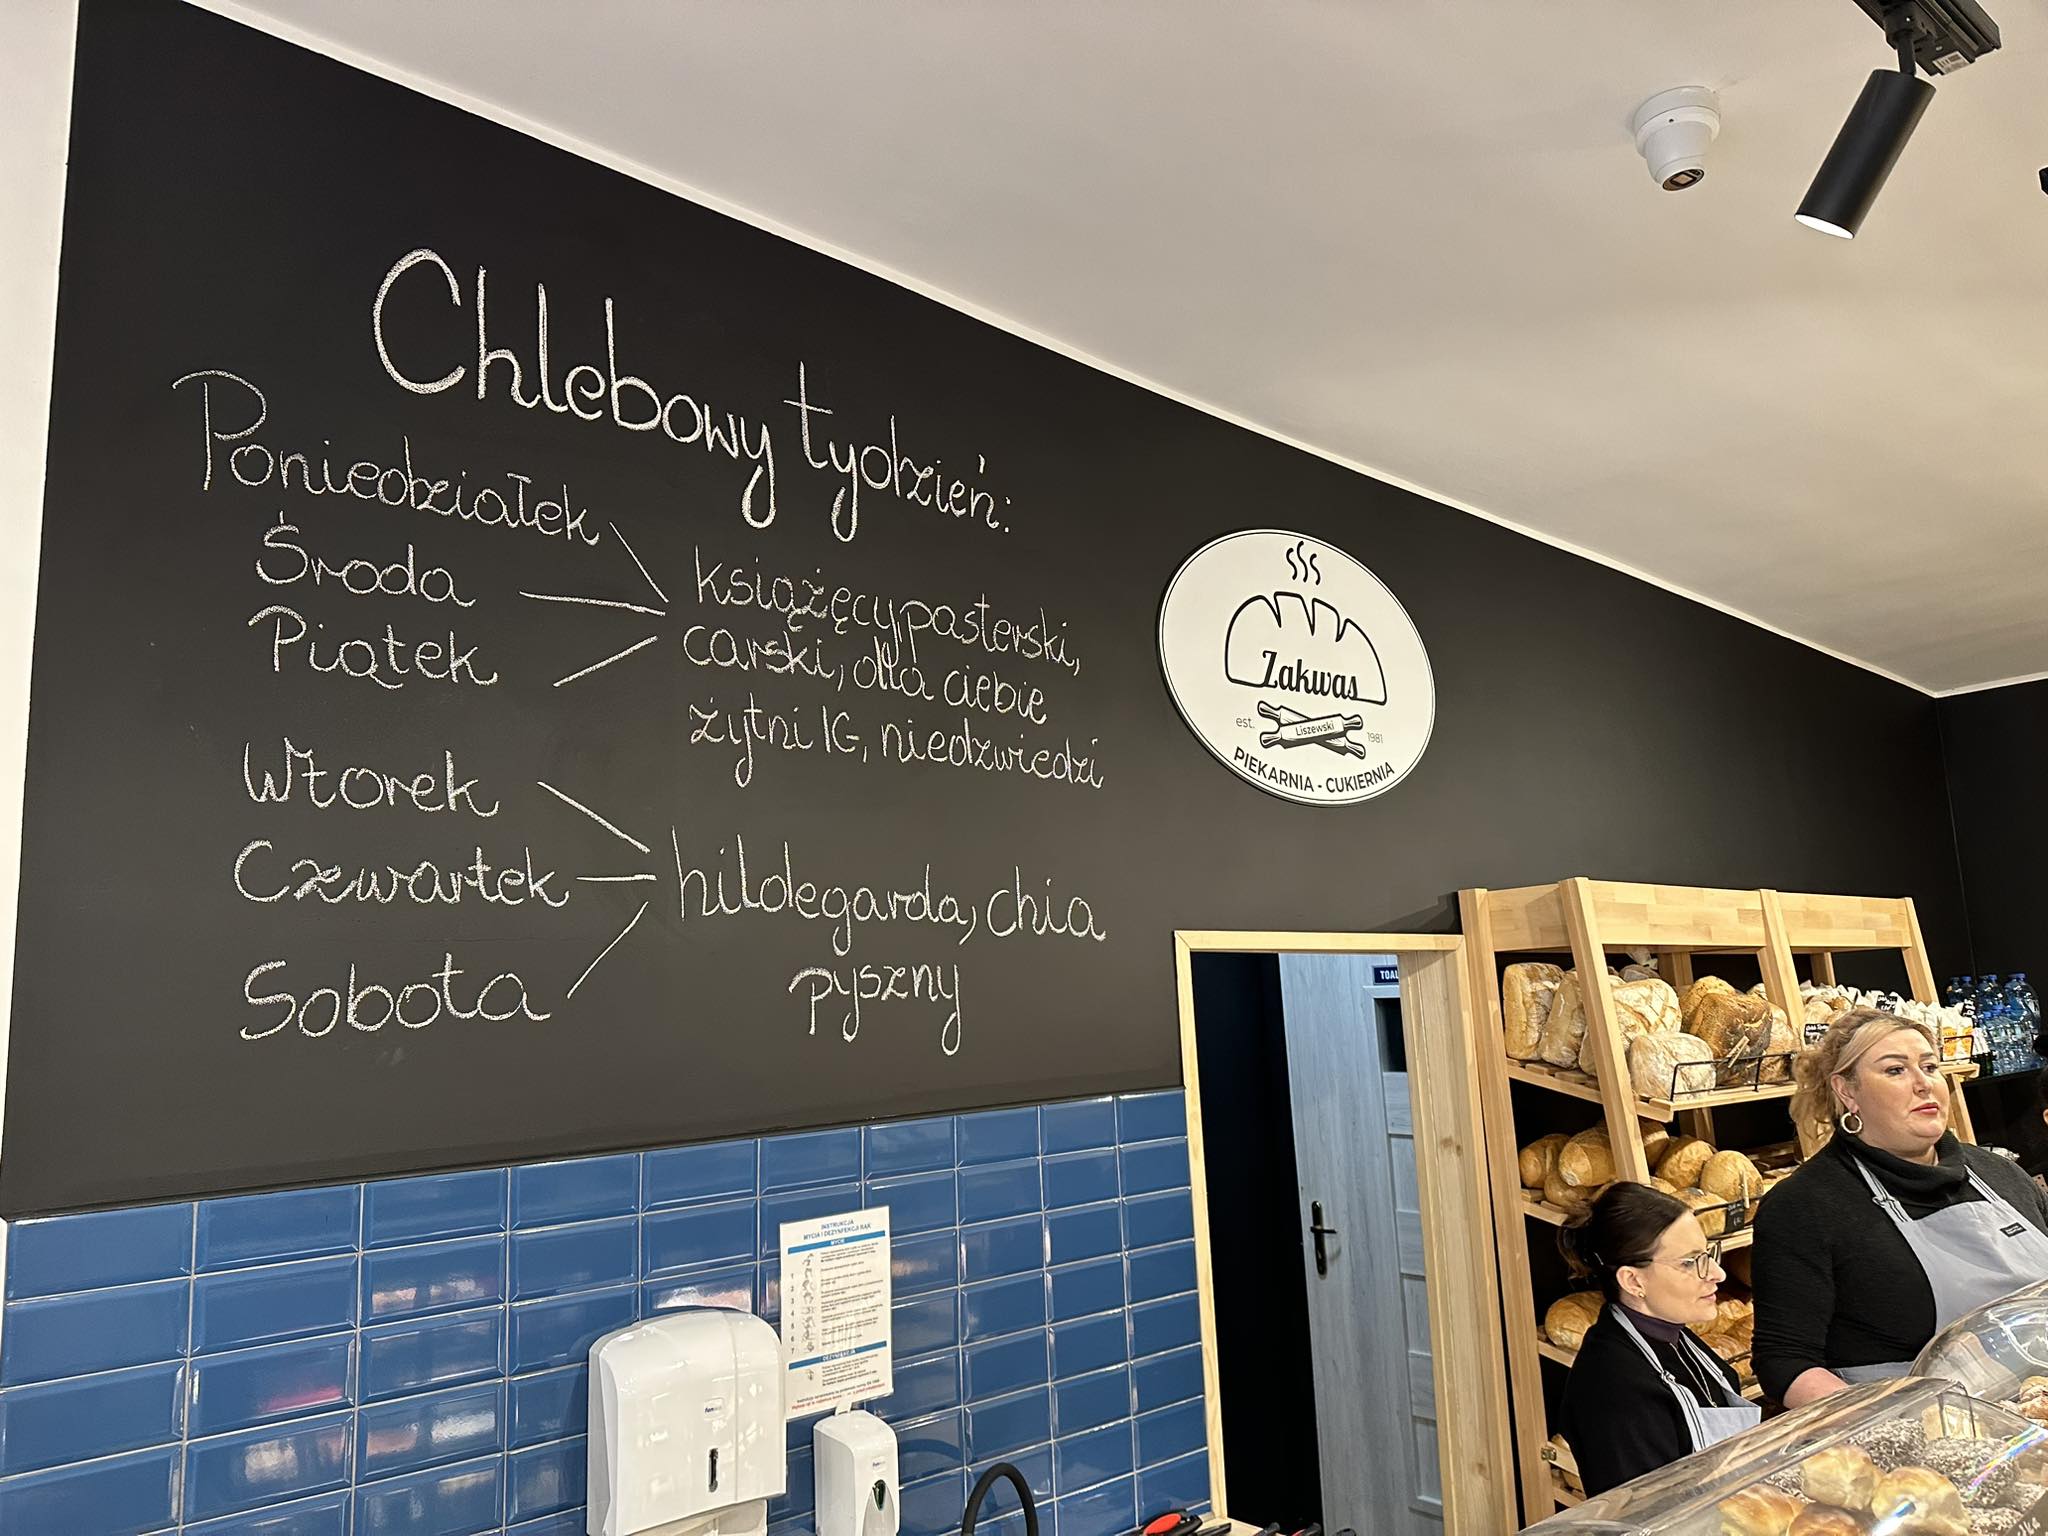 Chlebowy tydzień:
Poniedziałek
Środa
Piątek
książęcy, pasterski,
carski, dla ciebie
żytni IG, niedzwiedzi
Wtorek
Czwartek
Sobota
hildegarda, chia
pyszny
Zakwas
est. Liszewski 1981
PIEKARNIA - CUKIERNIA
TOAL
INSTRUKCJA
MYCIA I DEZYNFEKCJI RĄK
MYCIE
DEZYNFEKCJA